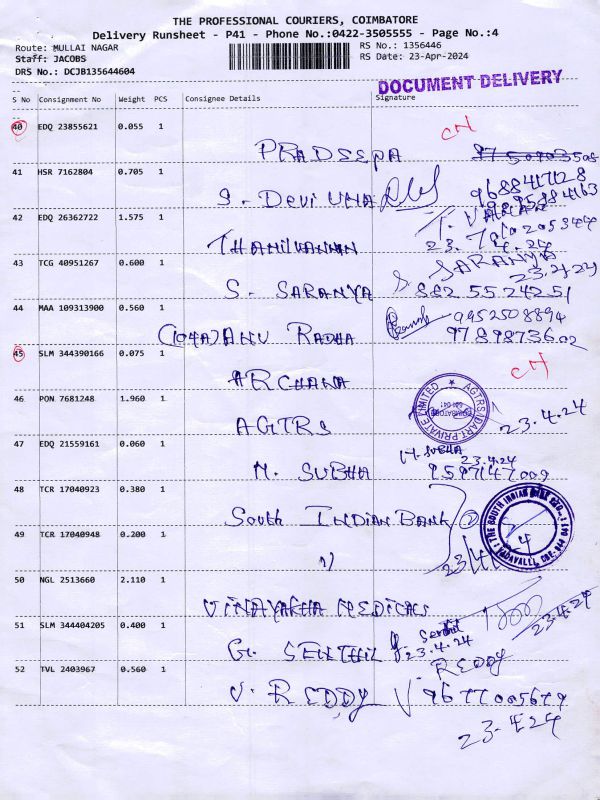 THE PROFESSIONAL COURIERS, COIMBATORE
Delivery Runsheet - P41 - Phone No.:0422-3505555 - Page No.:4
Route: MULLAI NAGAR
RS No.: 1356446
Staff: JACOBS
RS Date: 23-Apr-2024
DRS No.: DCJB135644604
DOCUMENT DELIVERY
S No Consignment No Weight PCS Consignee Details Signature
40 EDQ 23855621 0.055 1
CN
PRADEEPA
41 HSR 7162804 0.705 1
S. Devi UMA 9688417128
42 EDQ 26362722 1.575 1
THAMILVANNAN 23.4.24
43 TCG 40951267 0.600 1
SARANYA
23.4.24
S. SARANYA S 882 55 24251
44 MAA 109313900 0.560 1
9952508894
(104A) ANU RADHA 9789873602
45 SLM 344390166 0.075 1
CN
ARCHANA
46 PON 7681248 1.960 1
AGTRS 23.4.24
47 EDQ 21559161 0.060 1
M. SUBHA
23.4.24
M. SUBHA 9597147009
48 TCR 17040923 0.380 1
South INDIAN BANK
THE SOUTH INDIAN BANK LTD.
VADAVALLI, CBE-641 041
49 TCR 17040948 0.200 1
"
23/4
50 NGL 2513660 2.110 1
VINAYAKHA MEDICALS
23.4.24
51 SLM 344404205 0.400 1
Senthil
23.4.24
G. SENTHIL
REDDY
52 TVL 2403967 0.560 1
V. REDDY V 9677005679
23.4.24